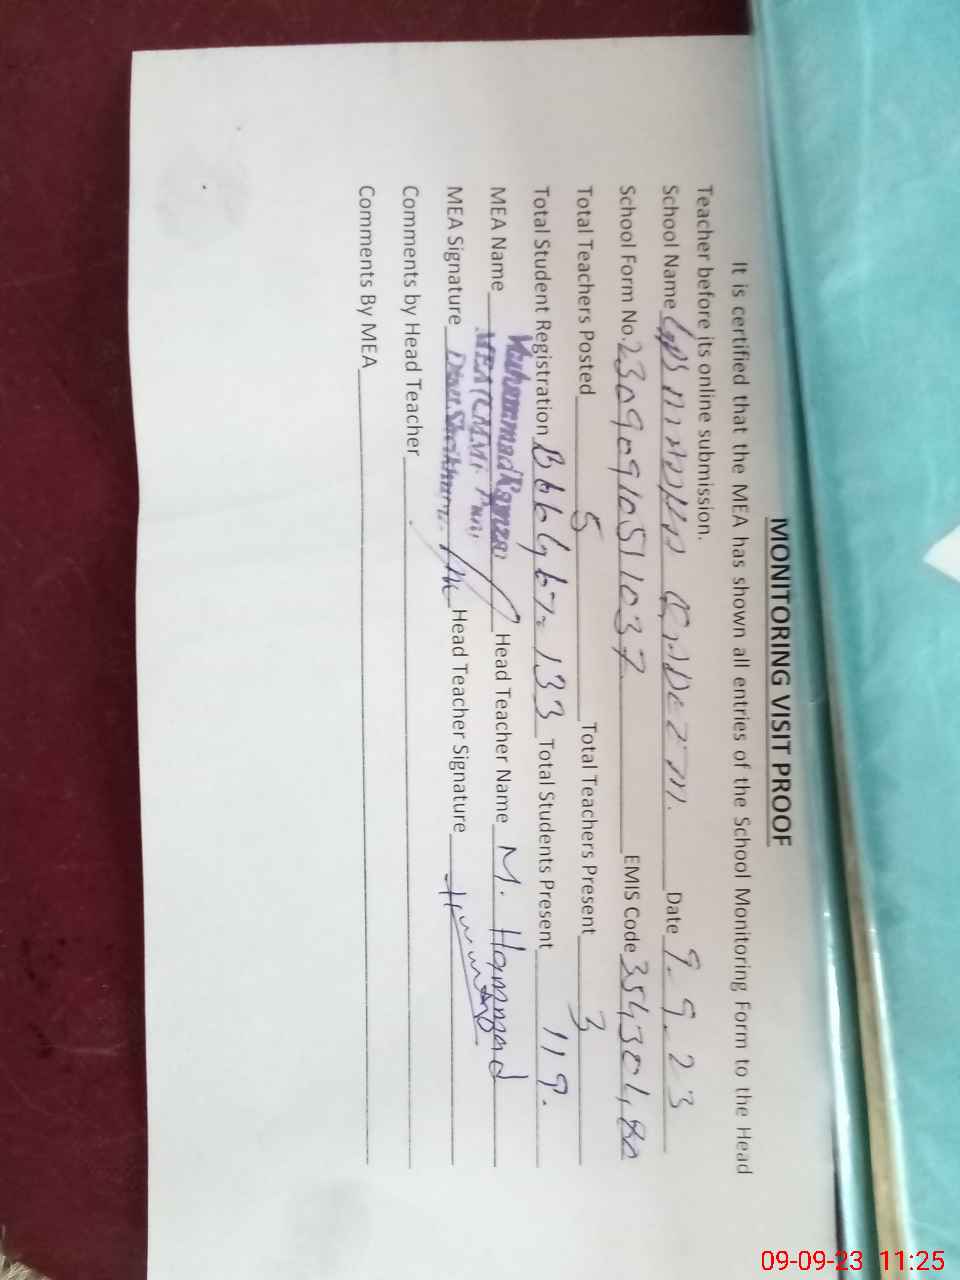 MONITORING VISIT PROOF
It is certified that the MEA has shown all entries of the School Monitoring Form to the Head
Teacher before its online submission.
School Name GPS Date 9-9-23
School Form No. 2309091051037 EMIS Code
Total Teachers Posted 5 Total Teachers Present 3
Total Student Registration 133 Total Students Present 119.
MEA Name Muhammad Head Teacher Name M. Hammad
MEA Signature Head Teacher Signature
Comments by Head Teacher
Comments By MEA
09-09-23 11:25